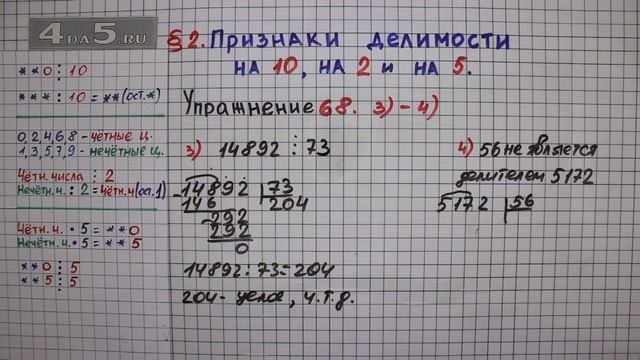 4DA5.RU
§2. Признаки делимости
на 10, на 2 и на 5.
* * 0 ⋮ 10
* * * : 10 = * * (ост. *)
0, 2, 4, 6, 8 - чётные ц.
1, 3, 5, 7, 9 - нечётные ц.
Чётн. числа ⋮ 2
Нечётн. ч. : 2 = чётн. ч (ост. 1)
Чётн. ч. • 5 = * * 0
Нечётн. ч. • 5 = * * 5
* * 0 ⋮ 5
* * 5 ⋮ 5
Упражнение 68. 3) - 4)
3) 14892 ⋮ 73
14892 | 73
- 146 204
292
- 292
0
14892 : 73 = 204
204 - целое, ч.т.д.
4) 56 не является
делителем 5172
5172 | 56